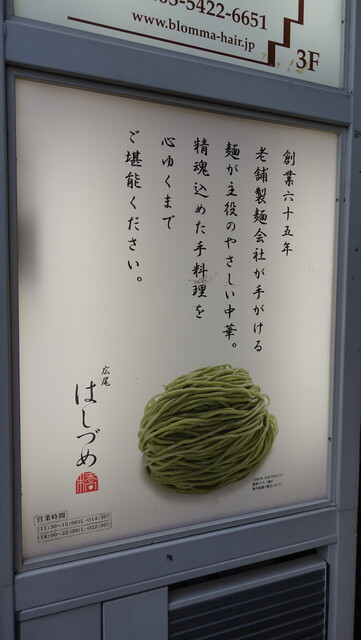 03-5422-6651
www.blomma-hair.jp
3F
創業六十五年
老舗製麺会社が手がける
麺が主役のやさしい中華。
精魂込めた手料理を
心ゆくまで
ご堪能ください。
広尾
はしづめ
橋
営業時間
11:30~15:00(L・O14:30)
18:00~23:00(L・O22:00)